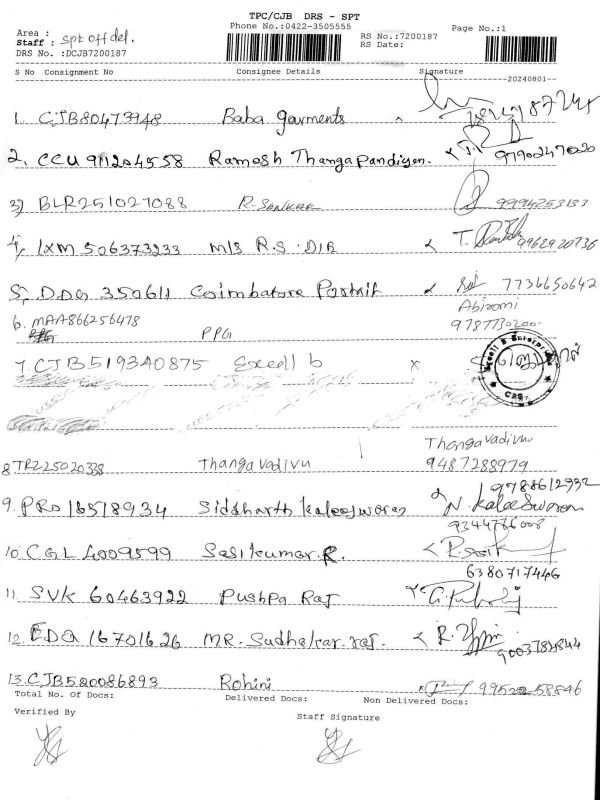 TPC/CJB DRS - SPT
Phone No.:0422-3505555
Page No.:1
Area :
Staff : spt off del.
DRS No. :DCJB7200187
RS No.:7200187
RS Date:
S No Consignment No Consignee Details Signature
20240801
1. CJB80473948 Baba garments
2. CCU 911204558 Ramesh Thangapandiyan. 9790247020
3) BLR251027088 R-Sankar 9994253133
4, IXM 506373233 M/S R.S. DIE T. 9962920736
5, DDG 350611 Coimbatore 7736650642
6. MAA866256478 PPG Abirami
9787730200
7. CJB519340875 Excell b x
8 TRZ25020338 Thangavadivu Thangavadivu
9487288979
9. PRO16518934 Siddharth kaleeswaran 9788612932
N. kaleeswaran
9344766008
10. CGL 4009599 Sasikumar.R.
6380717446
11) SVK 60463922 Pushpa Raj
12. EDG 16701626 MR. Sudhakar.raj.
13. CJB520086893 Rohini
Total No. Of Docs: Delivered Docs: Non Delivered Docs:
Verified By Staff Signature